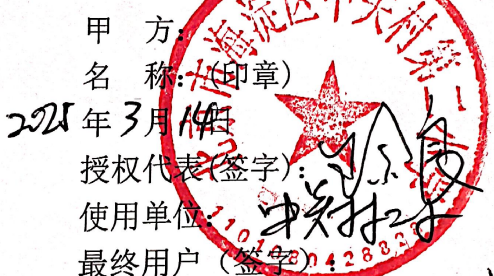 甲 方:
名 称:(印章)
2025年3月14日
授权代表(签字):
使用单位:中关村二小
最终用户(签字):
北京市海淀区中关村第二小学